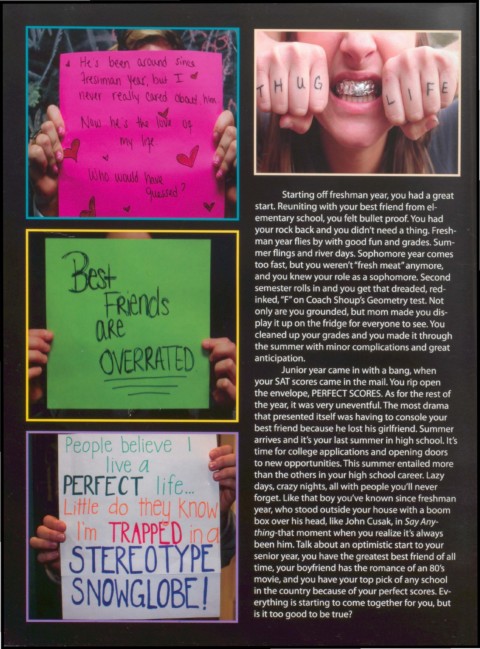 He's been around since
freshman year, but I
never really cared about him
Now he's the love of
my life.
Who would have
guessed?
THUG LIFE
Best
Friends
are
OVERRATED
People believe I
live a
PERFECT life...
Little do they know
I'm TRAPPED in a
STEREOTYPE
SNOWGLOBE!
Starting off freshman year, you had a great
start. Reuniting with your best friend from el-
ementary school, you felt bullet proof. You had
your rock back and you didn't need a thing. Fresh-
man year flies by with good fun and grades. Sum-
mer flings and river days. Sophomore year comes
too fast, but you weren't "fresh meat" anymore,
and you knew your role as a sophomore. Second
semester rolls in and you get that dreaded, red-
inked, "F" on Coach Shoup's Geometry test. Not
only are you grounded, but mom made you dis-
play it up on the fridge for everyone to see. You
cleaned up your grades and you made it through
the summer with minor complications and great
anticipation.
Junior year came in with a bang, when
your SAT scores came in the mail. You rip open
the envelope, PERFECT SCORES. As for the rest of
the year, it was very uneventful. The most drama
that presented itself was having to console your
best friend because he lost his girlfriend. Summer
arrives and it's your last summer in high school. It's
time for college applications and opening doors
to new opportunities. This summer entailed more
than the others in your high school career. Lazy
days, crazy nights, all with people you'll never
forget. Like that boy you've known since freshman
year, who stood outside your house with a boom
box over his head, like John Cusak, in Say Any-
thing-that moment when you realize it's always
been him. Talk about an optimistic start to your
senior year, you have the greatest best friend of all
time, your boyfriend has the romance of an 80's
movie, and you have your top pick of any school
in the country because of your perfect scores. Ev-
erything is starting to come together for you, but
is it too good to be true?